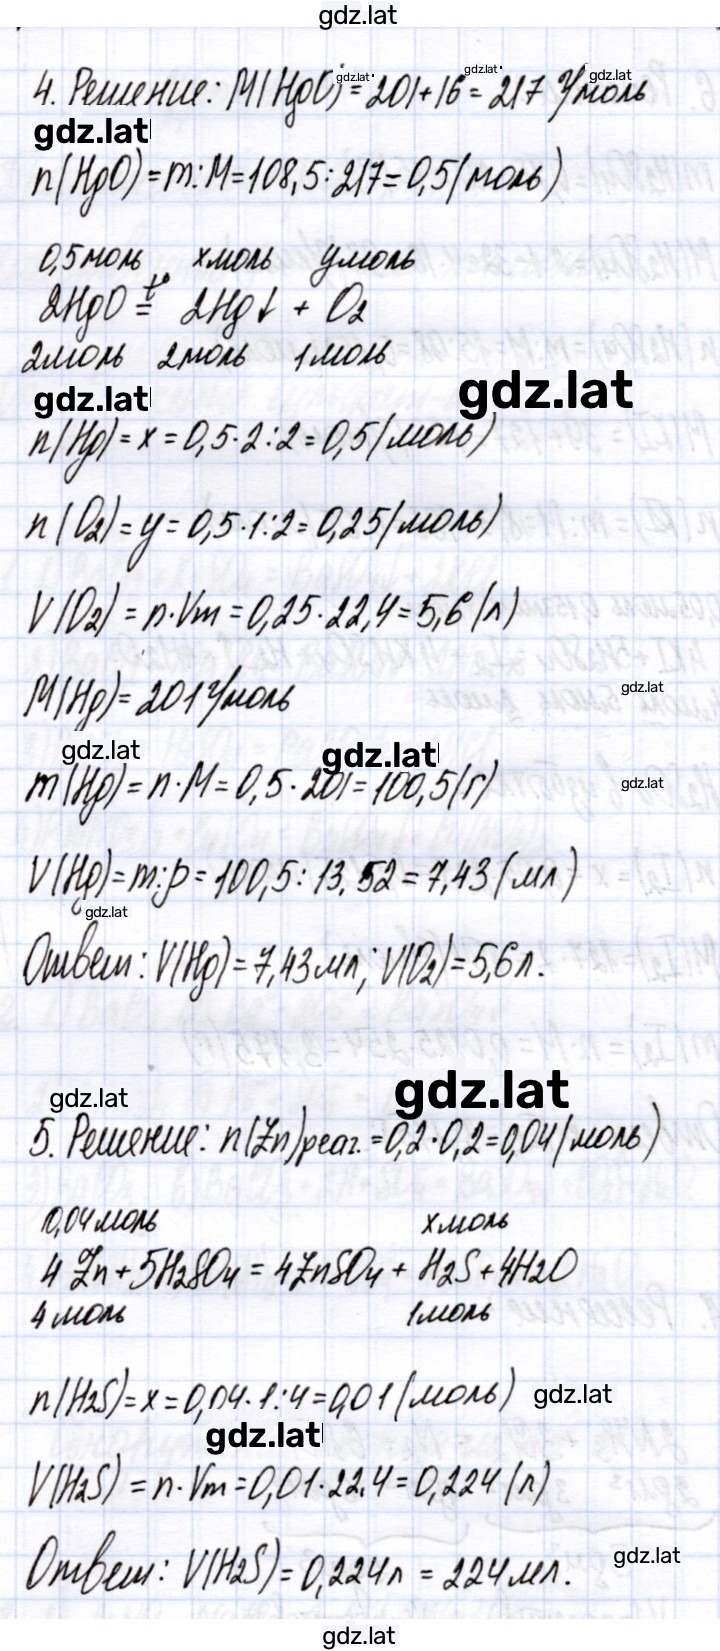 gdz.lat
gdz.lat gdz.lat gdz.lat
4. Решение: M(HgO) = 201+16 = 217 г/моль
gdz.lat
n(HgO) = m:M = 108,5:217 = 0,5(моль)
0,5моль xмоль yмоль
2HgO =t° 2Hg↓ + O2
2моль 2моль 1моль
gdz.lat
gdz.lat
n(Hg) = x = 0,5·2:2 = 0,5(моль)
n(O2) = y = 0,5·1:2 = 0,25(моль)
V(O2) = n·Vm = 0,25·22,4 = 5,6(л)
M(Hg) = 201 г/моль
gdz.lat
gdz.lat gdz.lat
m(Hg) = n·M = 0,5·201 = 100,5(г)
gdz.lat
V(Hg) = m:ρ = 100,5:13,52 = 7,43(мл)
gdz.lat
Ответ: V(Hg) = 7,43мл; V(O2) = 5,6л.
gdz.lat gdz.lat
5. Решение: n(Zn)реаг. = 0,2·0,2 = 0,04(моль)
0,04моль xмоль
4Zn + 5H2SO4 = 4ZnSO4 + H2S + 4H2O
4моль 1моль
n(H2S) = x = 0,04·1:4 = 0,01(моль) gdz.lat
gdz.lat
V(H2S) = n·Vm = 0,01·22,4 = 0,224(л)
gdz.lat
Ответ: V(H2S) = 0,224л = 224мл.
gdz.lat